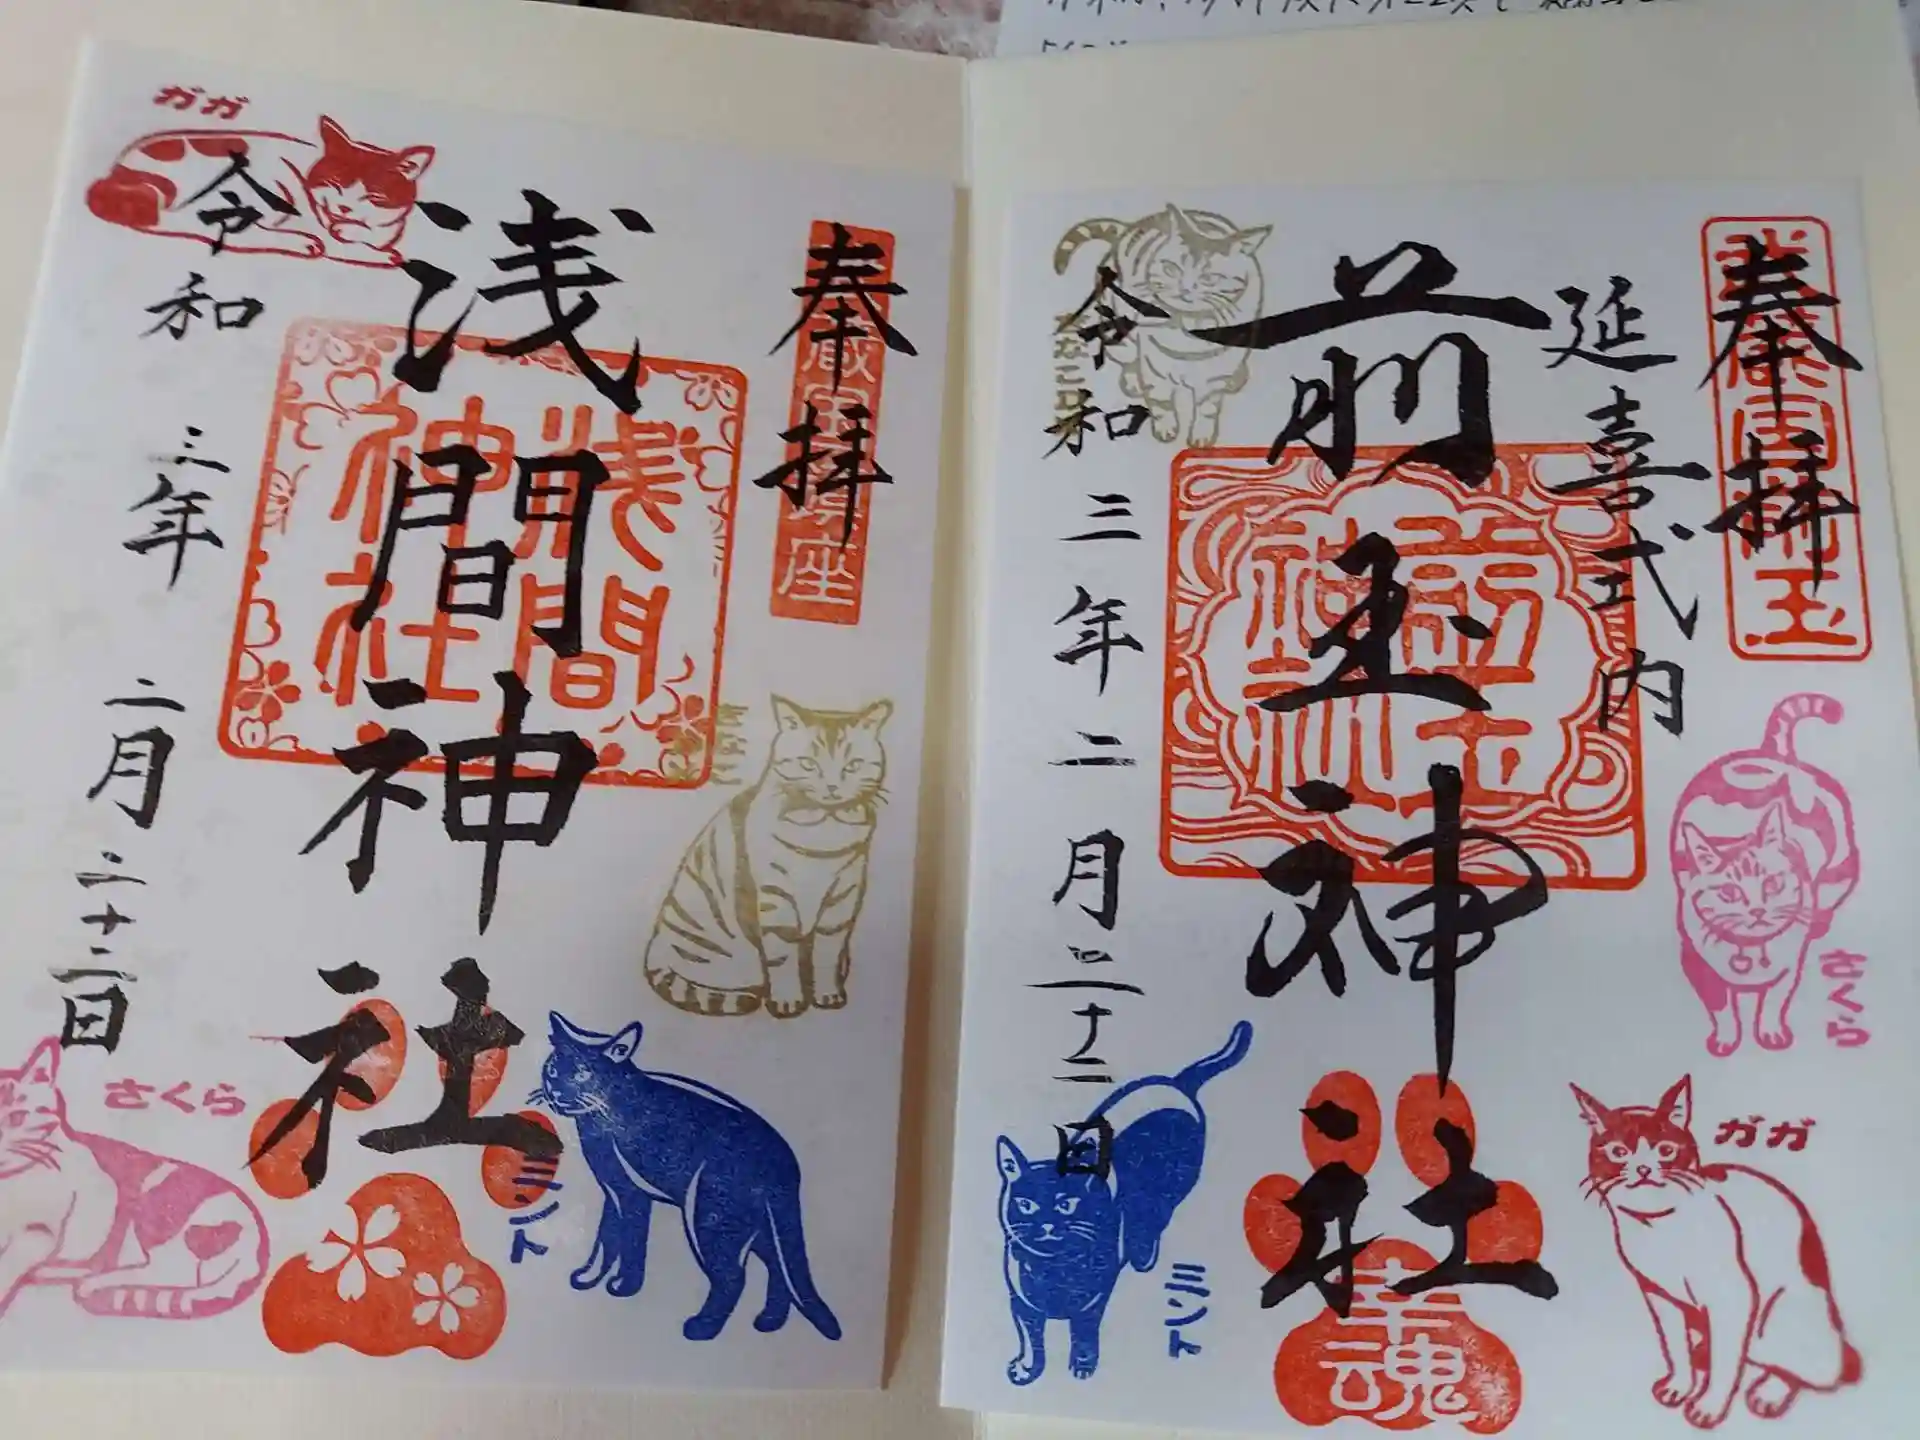 奉拝
延喜式内
前玉神社
令和三年二月二十二日
前玉神社
幸魂
きなこ
さくら
ガガ
ミント
奉拝
浅間神社
令和三年二月二十二日
浅間神社
ガガ
きなこ
さくら
ミント